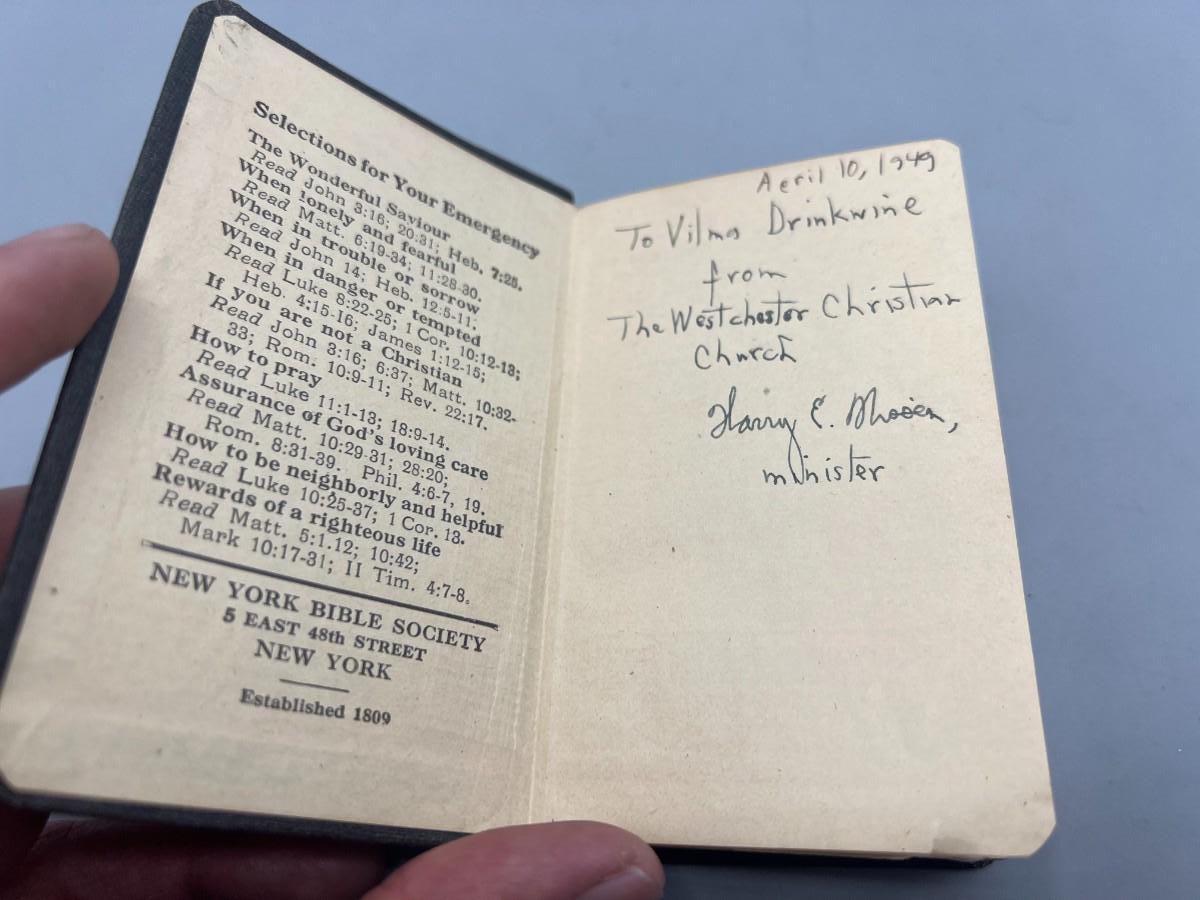 Selections for Your Emergency
The Wonderful Saviour
Read John 3:16; 20:31; Heb. 7:25.
When lonely and fearful
Read Matt. 6:19-34; 11:28-30.
When in trouble or sorrow
Read John 14; Heb. 12:5-11.
When in danger or tempted
Read Luke 8:22-25; 1 Cor. 10:12-13;
Heb. 4:15-16; James 1:12-15;
If you are not a Christian
Read John 3:16; 6:37; Matt. 10:32-
33; Rom. 10:9-11; Rev. 22:17.
How to pray
Read Luke 11:1-13; 18:9-14.
Assurance of God's loving care
Read Matt. 10:29-31; 28:20;
Rom. 8:31-39. Phil. 4:6-7, 19.
How to be neighborly and helpful
Read Luke 10:25-37; 1 Cor. 13.
Rewards of a righteous life
Read Matt. 5:1.12; 10:42;
Mark 10:17-31; II Tim. 4:7-8.
NEW YORK BIBLE SOCIETY
5 EAST 48th STREET
NEW YORK
Established 1809
April 10, 1949
To Vilma Drinkwine
from
The Westchester Christian
Church
Harry E.
minister